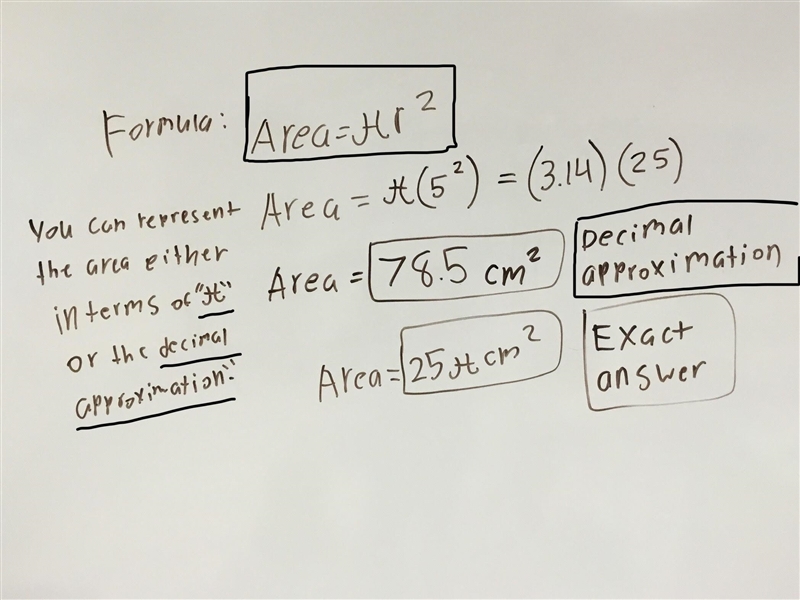 Formula: Area = πr²
Area = π(5²) = (3.14)(25)
You can represent
the area either
in terms of "π"
or the decimal
approximation."
Area = 78.5 cm²
Decimal
approximation
Area = 25π cm²
Exact
answer